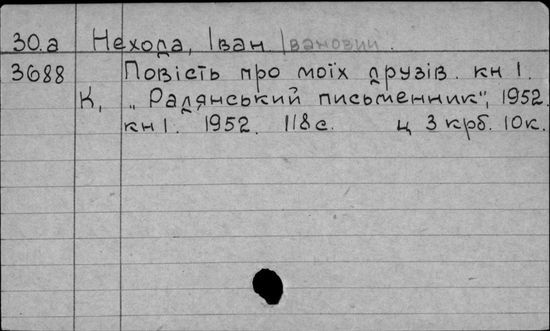 30.а Нехода, Іван Іванович.
3688 Повість про моїх друзів. кн 1.
К, „Радянський письменник", 1952.
кн 1. 1952. 118 с. ц 3 крб. 10 к.